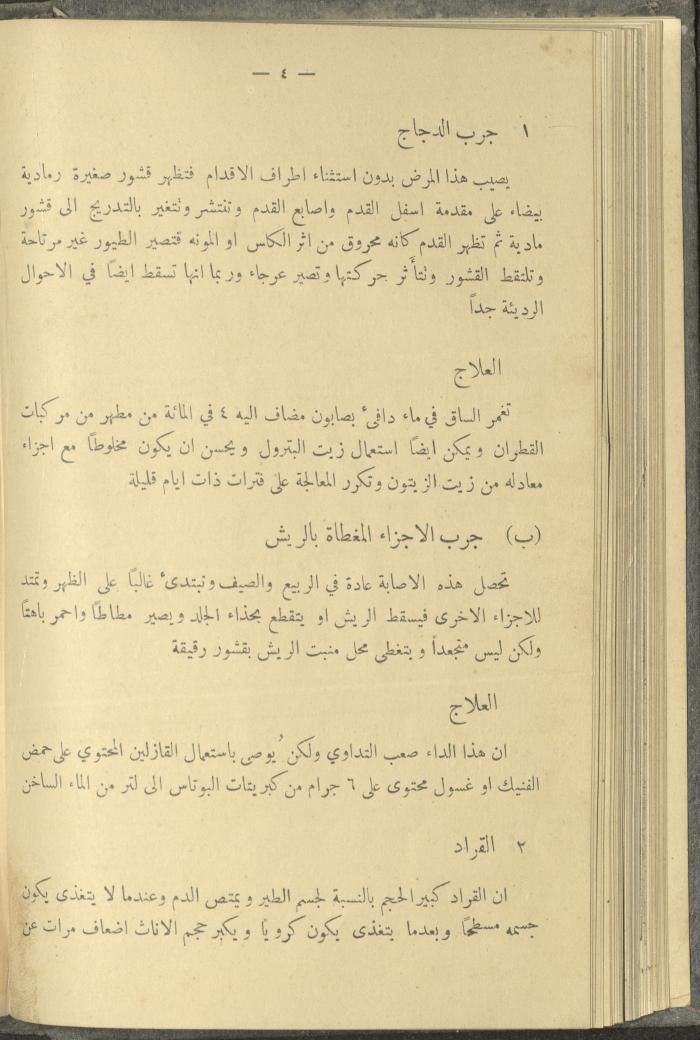 — ٤ —
١ جرب الدجاج
يصيب هذا المرض بدون استثناء اطراف الاقدام فتظهر قشور صغيرة رمادية
بيضاء على مقدمة اسفل القدم واصابع القدم وتنتشر وتتغير بالتدريج الى قشور
مادية ثم تظهر القدم كانه محروق من اثر الكاس او المونه فتصير الطيور غير مرتاحة
وتلتقط القشور وتتأثر حركتها وتصير عرجاء وربما انها تسقط ايضاً في الاحوال
الرديئة جداً
العلاج
تغمر الساق في ماء دافئ بصابون مضاف اليه ٤ في المائة من مطهر من مركبات
القطران ويمكن ايضاً استعمال زيت البترول ويحسن ان يكون مخلوطاً مع اجزاء
معادله من زيت الزيتون وتكرر المعالجة على فترات ذات ايام قليلة
(ب) جرب الاجزاء المغطاة بالريش
تحصل هذه الاصابة عادة في الربيع والصيف وتبتدئ غالباً على الظهر وتمتد
للاجزاء الاخرى فيسقط الريش او يتقطع بحذاء الجلد ويصير مطاطاً واحمر باهتاً
ولكن ليس متجعداً ويتغطى محل منبت الريش بقشور رقيقة
العلاج
ان هذا الداء صعب التداوي ولكن يُوصى باستعمال القازلين المحتوي على حمض
الفنيك او غسول محتوى على ٦ جرام من كبريتات البوتاس الى لتر من الماء الساخن
٢ القراد
ان القراد كبير الحجم بالنسبة لجسم الطير ويمتص الدم وعندما لا يتغذى يكون
جسمه مسطحاً وبعدما يتغذى يكون كروياً ويكبر حجم الاناث اضعاف مرات عن